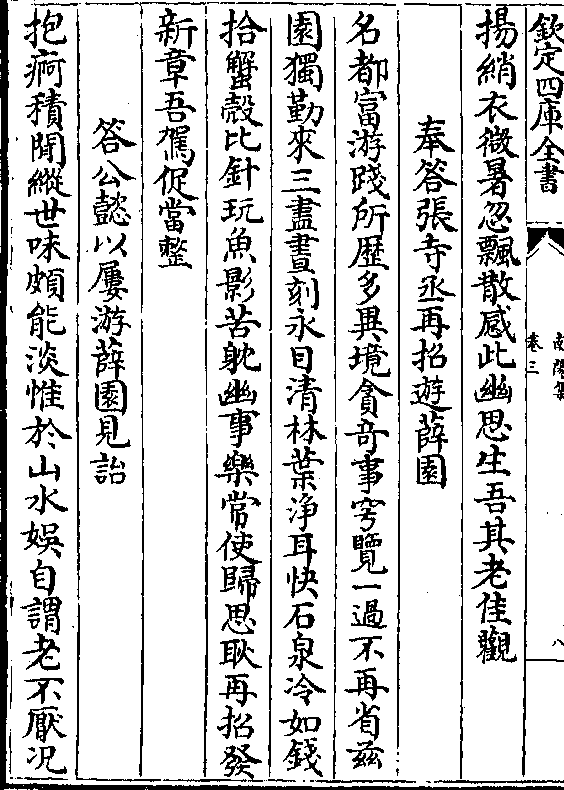 欽定四庫全書
南陽集
卷三
八
揚綃衣微暑忽飄散感此幽思生吾其老佳觀
奉答張寺丞再招遊薛園
名都富游踐所歴多異境貪竒事穿覽一過不再省兹
園獨勤來三盡晝刻永目清林葉淨耳快石泉冷如錢
拾蟹殻比針玩魚影苦躭幽事樂常使歸思耿再招發
新章吾駕促當整
答公懿以屢游薛園見詒
抱痾積閒縱世味頗能淡惟於山水娯自謂老不厭况